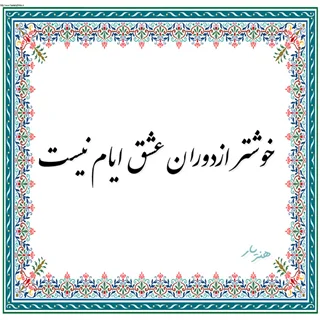 خوشتر از دوران عشق ایام نیست
هنریار